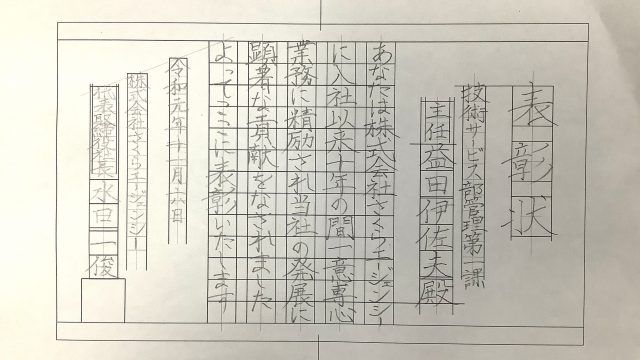 表彰状
技術サービス部管理第一課
主任益田伊佐夫殿
あなたは株式会社さくらエージェンシー
に入社以来十年の間一意専心
業務に精励され当社の発展に
顕著な貢献をなされました
よってここに表彰いたします
令和元年十一月六日
株式会社さくらエージェンシー
代表取締役社長水田一俊